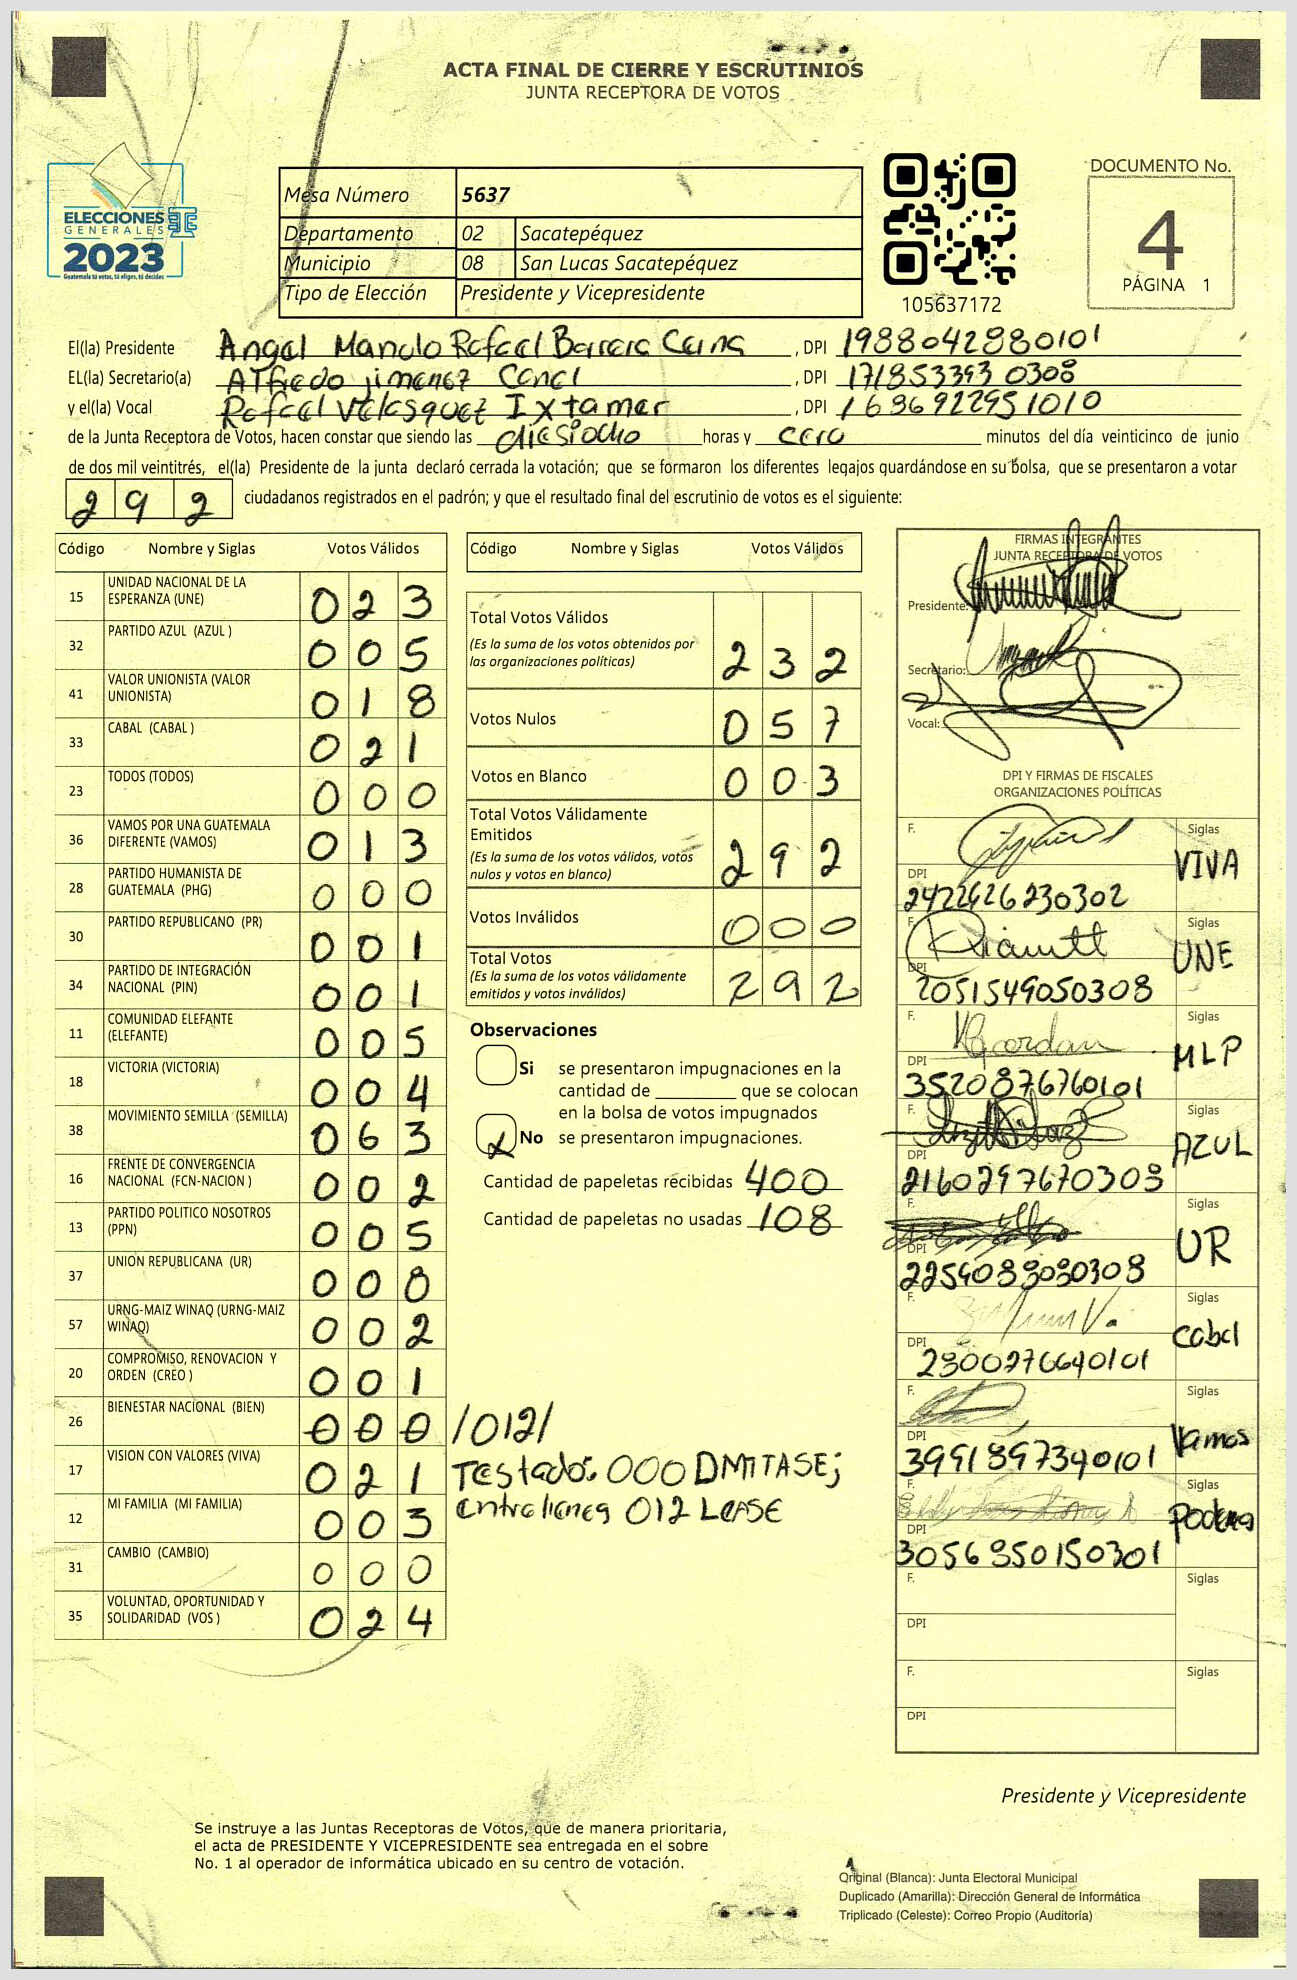 ACTA FINAL DE CIERRE Y ESCRUTINIOS
JUNTA RECEPTORA DE VOTOS
ELECCIONES
GENERALES
2023
Guatemala tú votas, tú eliges, tú decides
Mesa Número 5637
Departamento 02 Sacatepéquez
Municipio 08 San Lucas Sacatepéquez
Tipo de Elección Presidente y Vicepresidente
105637172
DOCUMENTO No.
4
PÁGINA 1
El(la) Presidente Angel Manolo Rafael Barrera , DPI 1988042880101
EL(la) Secretario(a) Alfredo jimenez Canel , DPI 171853393 0308
y el(la) Vocal Rafael Velasquez Ixtamer , DPI 1686922951010
de la Junta Receptora de Votos, hacen constar que siendo las diesiocho horas y cero minutos del día veinticinco de junio
de dos mil veintitrés, el(la) Presidente de la junta declaró cerrada la votación; que se formaron los diferentes legajos guardándose en su bolsa, que se presentaron a votar
292 ciudadanos registrados en el padrón; y que el resultado final del escrutinio de votos es el siguiente:
Código Nombre y Siglas Votos Válidos
15 UNIDAD NACIONAL DE LA ESPERANZA (UNE) 023
32 PARTIDO AZUL (AZUL ) 005
41 VALOR UNIONISTA (VALOR UNIONISTA) 018
33 CABAL (CABAL ) 021
23 TODOS (TODOS) 000
36 VAMOS POR UNA GUATEMALA DIFERENTE (VAMOS) 013
28 PARTIDO HUMANISTA DE GUATEMALA (PHG) 000
30 PARTIDO REPUBLICANO (PR) 001
34 PARTIDO DE INTEGRACIÓN NACIONAL (PIN) 001
11 COMUNIDAD ELEFANTE (ELEFANTE) 005
18 VICTORIA (VICTORIA) 004
38 MOVIMIENTO SEMILLA (SEMILLA) 063
16 FRENTE DE CONVERGENCIA NACIONAL (FCN-NACION ) 002
13 PARTIDO POLITICO NOSOTROS (PPN) 005
37 UNION REPUBLICANA (UR) 008
57 URNG-MAIZ WINAQ (URNG-MAIZ WINAQ) 002
20 COMPROMISO, RENOVACION Y ORDEN (CREO ) 001
26 BIENESTAR NACIONAL (BIEN) 000 /012/
17 VISION CON VALORES (VIVA) 021
12 MI FAMILIA (MI FAMILIA) 003
31 CAMBIO (CAMBIO) 000
35 VOLUNTAD, OPORTUNIDAD Y SOLIDARIDAD (VOS ) 024
Testado: 000 OMITASE;
entre lienea 012 LEASE
Código Nombre y Siglas Votos Válidos
Total Votos Válidos 232
(Es la suma de los votos obtenidos por
las organizaciones políticas)
Votos Nulos 057
Votos en Blanco 003
Total Votos Válidamente
Emitidos 292
(Es la suma de los votos válidos, votos
nulos y votos en blanco)
Votos Inválidos 000
Total Votos 292
(Es la suma de los votos válidamente
emitidos y votos inválidos)
Observaciones
Si se presentaron impugnaciones en la
cantidad de ________ que se colocan
en la bolsa de votos impugnados
X No se presentaron impugnaciones.
Cantidad de papeletas recibidas 400
Cantidad de papeletas no usadas 108
FIRMAS INTEGRANTES
JUNTA RECEPTORA DE VOTOS
Presidente:
Secretario:
Vocal:
DPI Y FIRMAS DE FISCALES
ORGANIZACIONES POLÍTICAS
F. Siglas VIVA
DPI
F. Siglas UNE
DPI 2051549050308
F. Siglas MLP
DPI 3520876760101
F. Siglas AZUL
DPI 2160297670303
F. Siglas UR
DPI
F. Siglas cabal
DPI 2300276640101
F. Siglas Vamos
DPI 3991897340101
F. Siglas
DPI 3056350150301
F. Siglas
DPI
F. Siglas
DPI
Presidente y Vicepresidente
Se instruye a las Juntas Receptoras de Votos, que de manera prioritaria,
el acta de PRESIDENTE Y VICEPRESIDENTE sea entregada en el sobre
No. 1 al operador de informática ubicado en su centro de votación.
Original (Blanca): Junta Electoral Municipal
Duplicado (Amarilla): Dirección General de Informática
Triplicado (Celeste): Correo Propio (Auditoría)